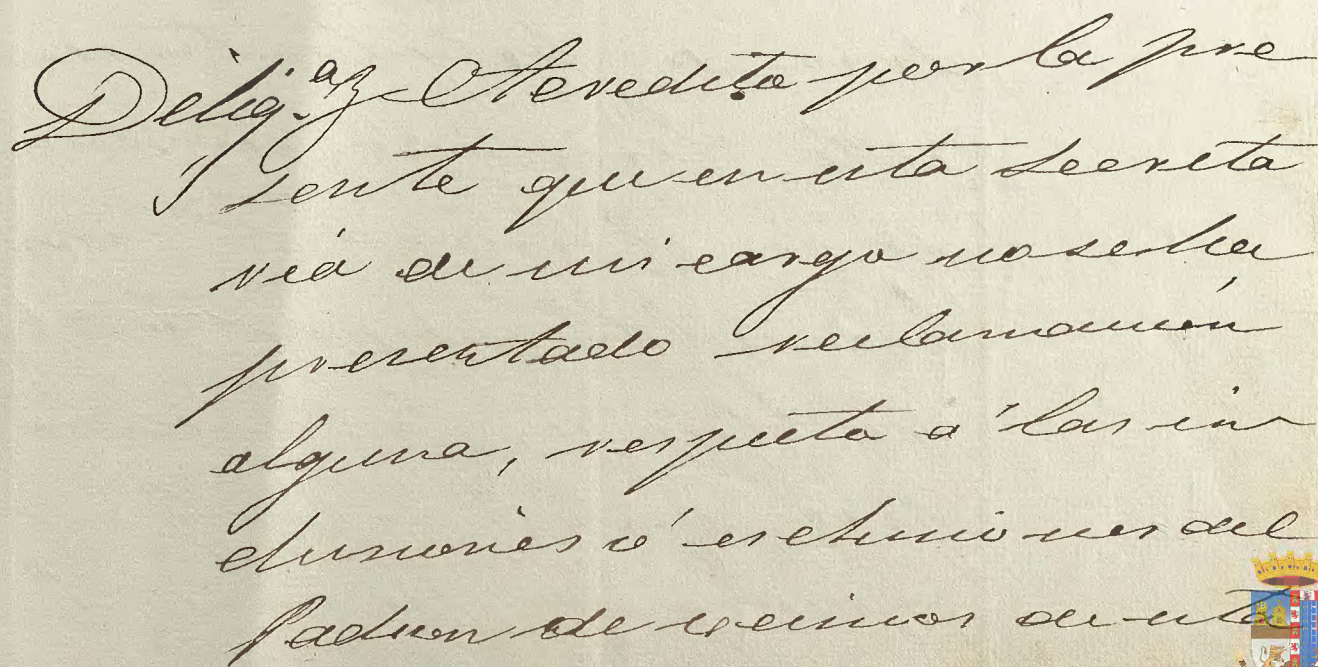 Delig.ᵃ Acredito por la pre
sente que en esta secreta
ria de mi cargo no se ha
presentado reclamación
alguna, respeto á las in
clusiones ó esclusiones del
Padron de vecinos de esta